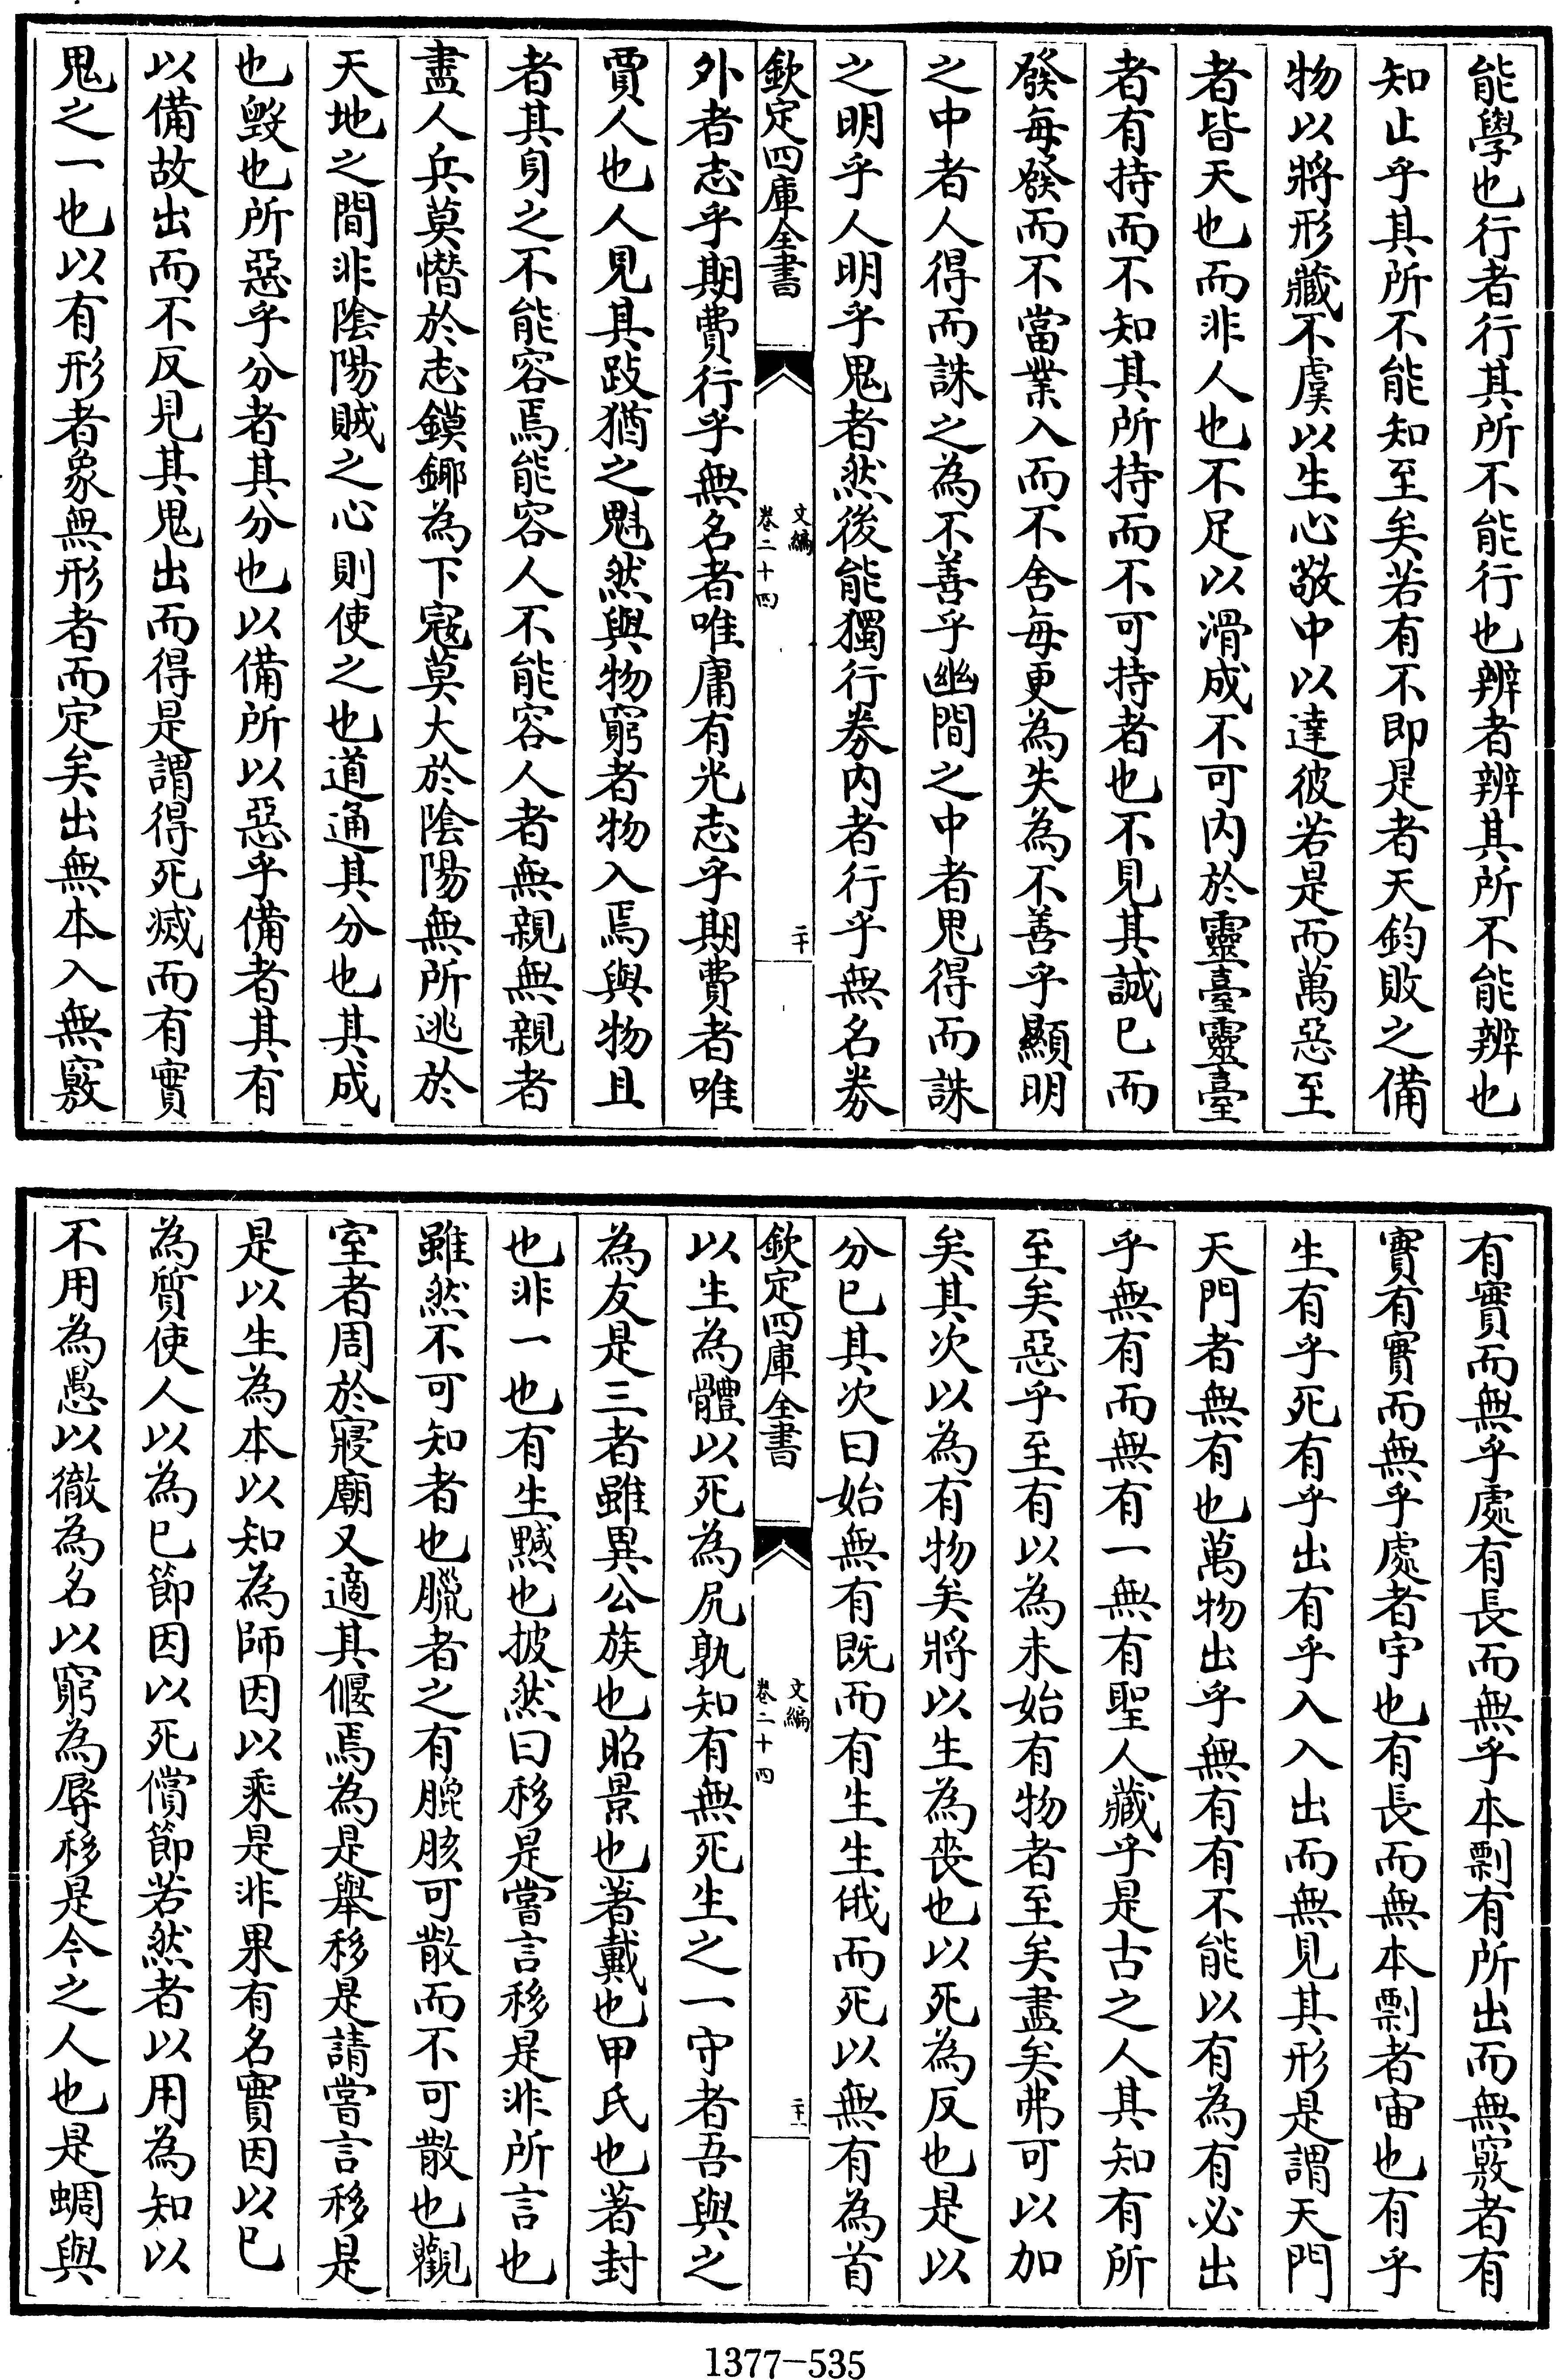 能學也行者行其所不能行也辨者辨其所不能辨也
知止乎其所不能知至矣若有不即是者天鈞敗之備
物以將形藏不虞以生心敬中以達彼若是而萬惡至
者皆天也而非人也不足以滑成不可內於靈臺靈臺
者有持而不知其所持而不可持者也不見其誠已而
發每發而不當業入而不舍每更為失為不善乎顯明
之中者人得而誅之為不善乎幽間之中者鬼得而誅
之明乎人明乎鬼者然後能獨行券內者行乎無名券
欽定四庫全書
文編
卷二十四
二十
外者志乎期費行乎無名者唯庸有光志乎期費者唯
賈人也人見其跂猶之魁然與物窮者物入焉與物且
者其身之不能容焉能容人不能容人者無親無親者
盡人兵莫憯於志鏌鋣為下寇莫大於陰陽無所逃於
天地之間非陰陽賊之心則使之也道通其分也其成
也毀也所惡乎分者其分也以備所以惡乎備者其有
以備故出而不反見其鬼出而得是謂得死滅而有實
鬼之一也以有形者象無形者而定矣出無本入無竅
有實而無乎處有長而無乎本剽有所出而無竅者有
實有實而無乎處者宇也有長而無本剽者宙也有乎
生有乎死有乎出有乎入入出而無見其形是謂天門
天門者無有也萬物出乎無有有不能以有為有必出
乎無有而無有一無有聖人藏乎是古之人其知有所
至矣惡乎至有以為未始有物者至矣盡矣弗可以加
矣其次以為有物矣將以生為喪也以死為反也是以
分已其次曰始無有既而有生生俄而死以無有為首
欽定四庫全書
文編
卷二十四
二十一
以生為體以死為尻孰知有無死生之一守者吾與之
為友是三者雖異公族也昭景也著戴也甲氏也著封
也非一也有生黬也披然曰移是嘗言移是非所言也
雖然不可知者也臘者之有膍胲可散而不可散也觀
室者周於寢廟又適其偃焉為是舉移是請嘗言移是
是以生為本以知為師因以乘是非果有名實因以已
為質使人以為已節因以死償節若然者以用為知以
不用為愚以徹為名以窮為辱移是今之人也是蜩與
1377-535